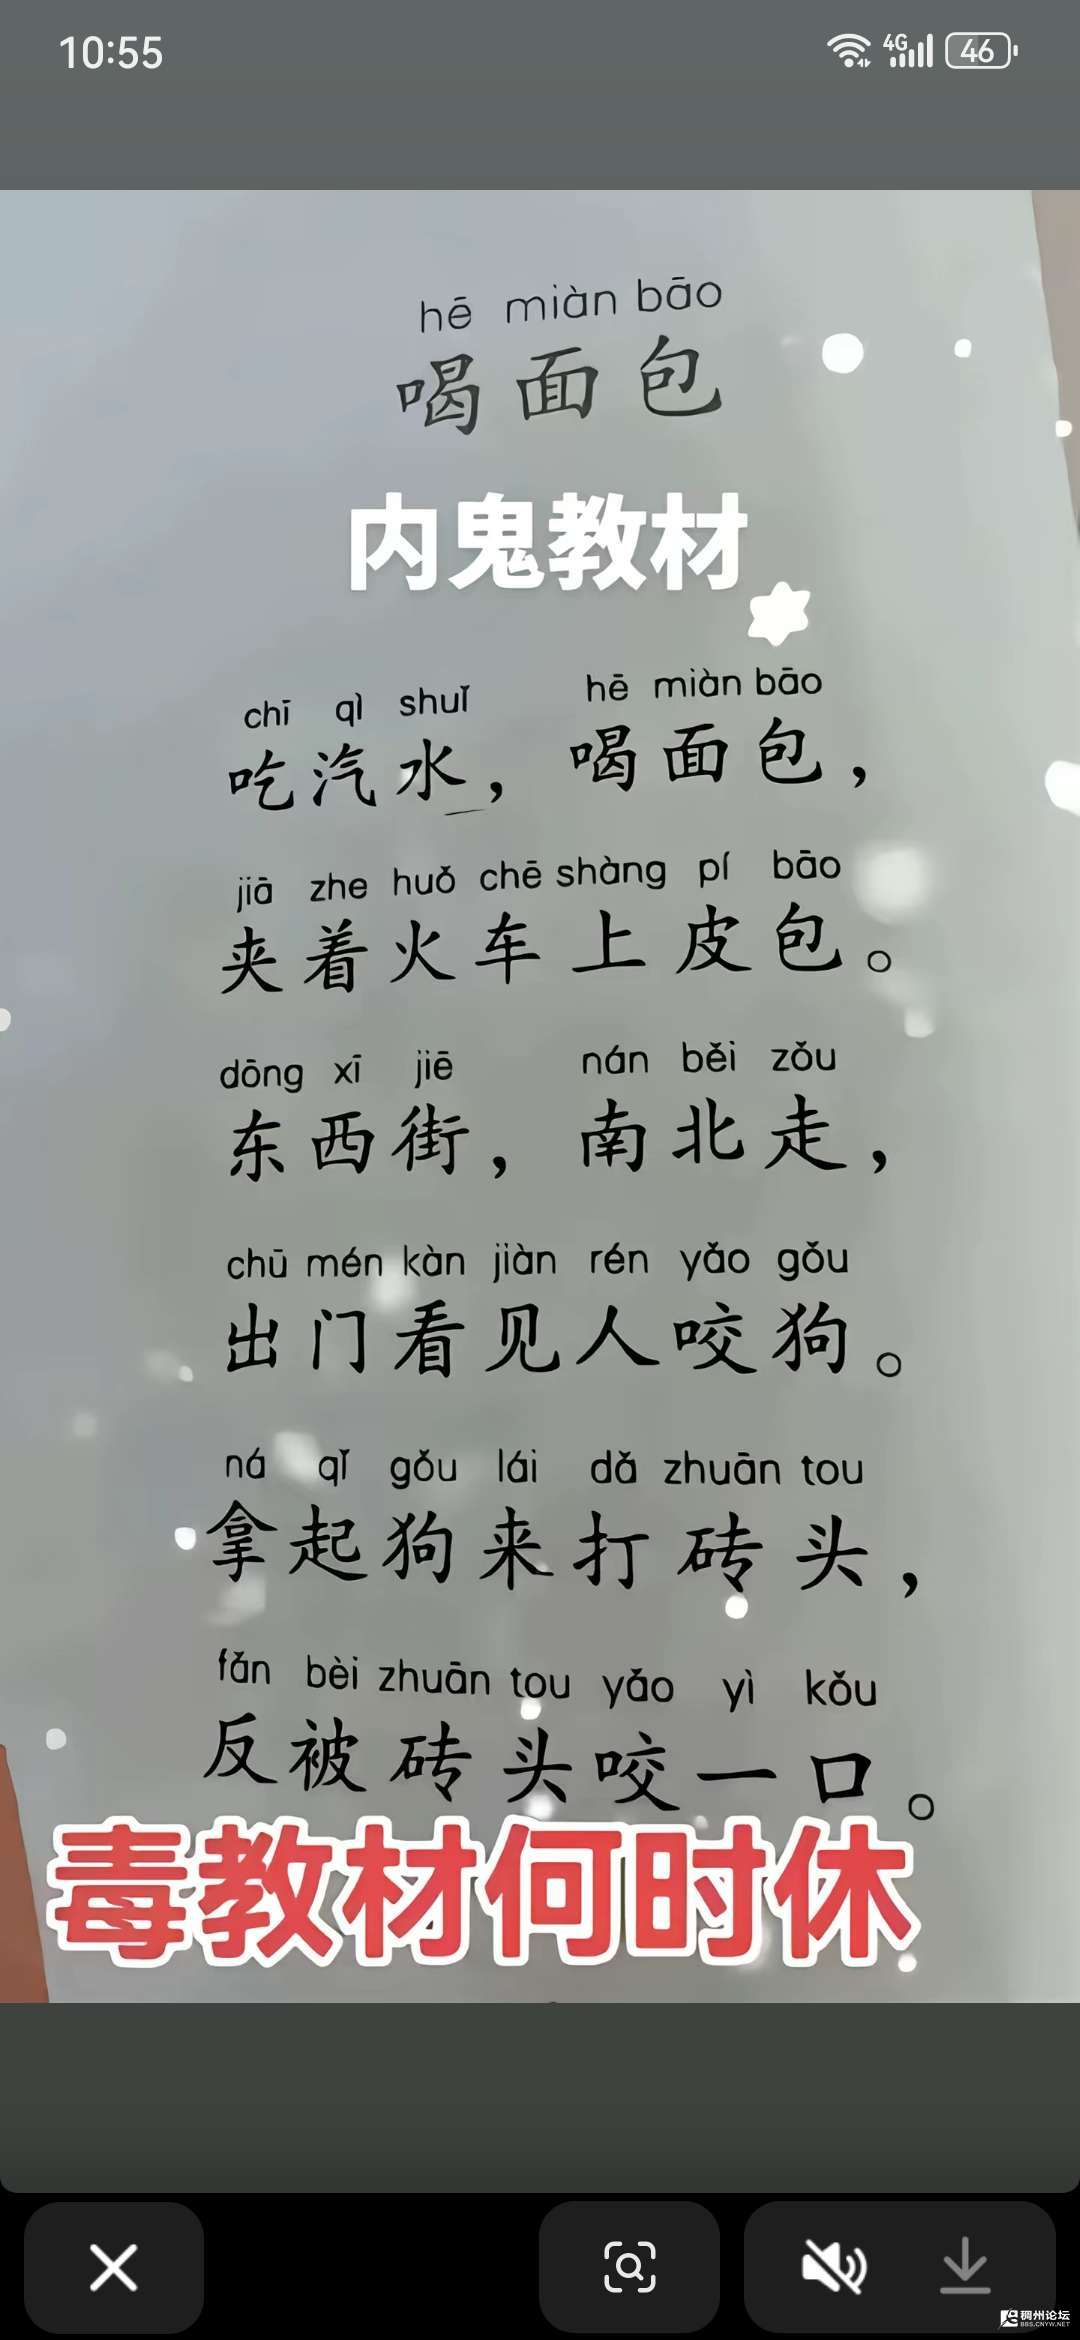 10:55
4G
46
hē miàn bāo
喝面包
内鬼教材
chī qì shuǐ hē miàn bāo
吃汽水，喝面包，
jiā zhe huǒ chē shàng pí bāo
夹着火车上皮包。
dōng xī jiē nán běi zǒu
东西街，南北走，
chū mén kàn jiàn rén yǎo gǒu
出门看见人咬狗。
ná qǐ gǒu lái dǎ zhuān tou
拿起狗来打砖头，
fǎn bèi zhuān tou yǎo yì kǒu
反被砖头咬一口。
毒教材何时休
稠州论坛
BBS.CNYW.NET